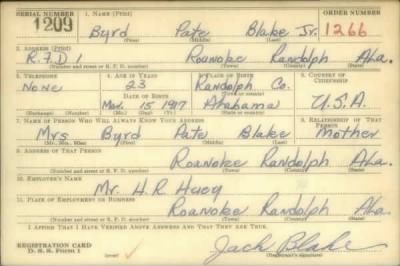 SERIAL NUMBER 1. NAME (Print) ORDER NUMBER
1209 Byrd Pate Blake Jr. 1266
(First) (Middle) (Last)
2. ADDRESS (Print)
R.F.D 1 Roanoke Randolph Ala.
(Number and street or R. F. D. number) (Town) (County) (State)
3. TELEPHONE 4. AGE IN YEARS 5. PLACE OF BIRTH 6. COUNTRY OF CITIZENSHIP
None 23 Randolph Co.
DATE OF BIRTH
Mar. 15 1917 Alabama U.S.A.
(Exchange) (Number) (Mo.) (Day) (Yr.) (State or country)
7. NAME OF PERSON WHO WILL ALWAYS KNOW YOUR ADDRESS 8. RELATIONSHIP OF THAT PERSON
Mrs Byrd Pate Blake Mother
(Mr., Mrs., Miss) (First) (Middle) (Last)
9. ADDRESS OF THAT PERSON
Roanoke Randolph Ala.
(Number and street or R. F. D. number) (Town) (County) (State)
10. EMPLOYER'S NAME
Mr. H. R. Huey
11. PLACE OF EMPLOYMENT OR BUSINESS
Roanoke Randolph Ala.
(Number and street or R. F. D. number) (Town) (County) (State)
I AFFIRM THAT I HAVE VERIFIED ABOVE ANSWERS AND THAT THEY ARE TRUE.
REGISTRATION CARD
D. S. S. Form 1 (over) Jack Blake
(Registrant's signature)